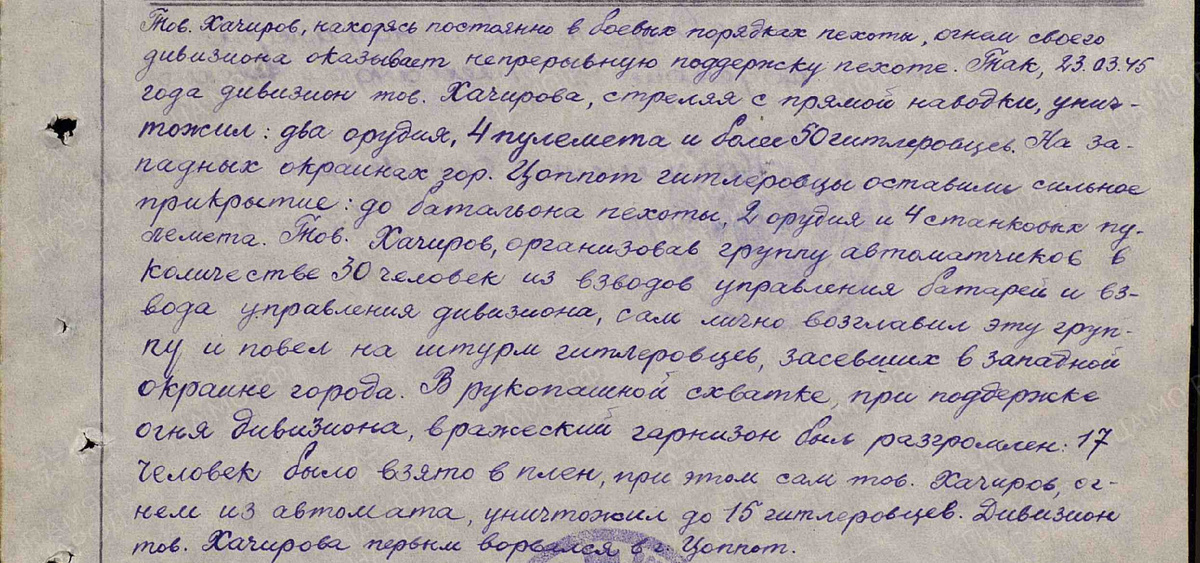 Тов. Хачиров, находясь постоянно в боевых порядках пехоты, огнем своего
дивизиона оказывает непрерывную поддержку пехоте. Так, 23.03.45
года дивизион тов. Хачирова, стреляя с прямой наводки, унич-
тожил: два орудия, 4 пулемета и более 50 гитлеровцев. На за-
падных окраинах гор. Цоппот гитлеровцы оставили сильное
прикрытие: до батальона пехоты, 2 орудия и 4 станковых пу-
лемета. Тов. Хачиров, организовав группу автоматчиков в
количестве 30 человек из взводов управления батарей и вз-
вода управления дивизиона, сам лично возглавил эту груп-
пу и повел на штурм гитлеровцев, засевших в западной
окраине города. В рукопашной схватке, при поддержке
огня дивизиона, вражеский гарнизон был разгромлен: 17
человек было взято в плен, при этом сам тов. Хачиров, ог-
нем из автомата, уничтожил до 15 гитлеровцев. Дивизион
тов. Хачирова первым ворвался в г. Цоппот.